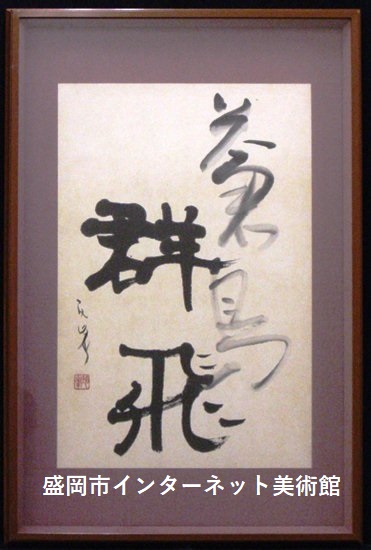 蒼鳥
群飛
盛岡市インターネット美術館